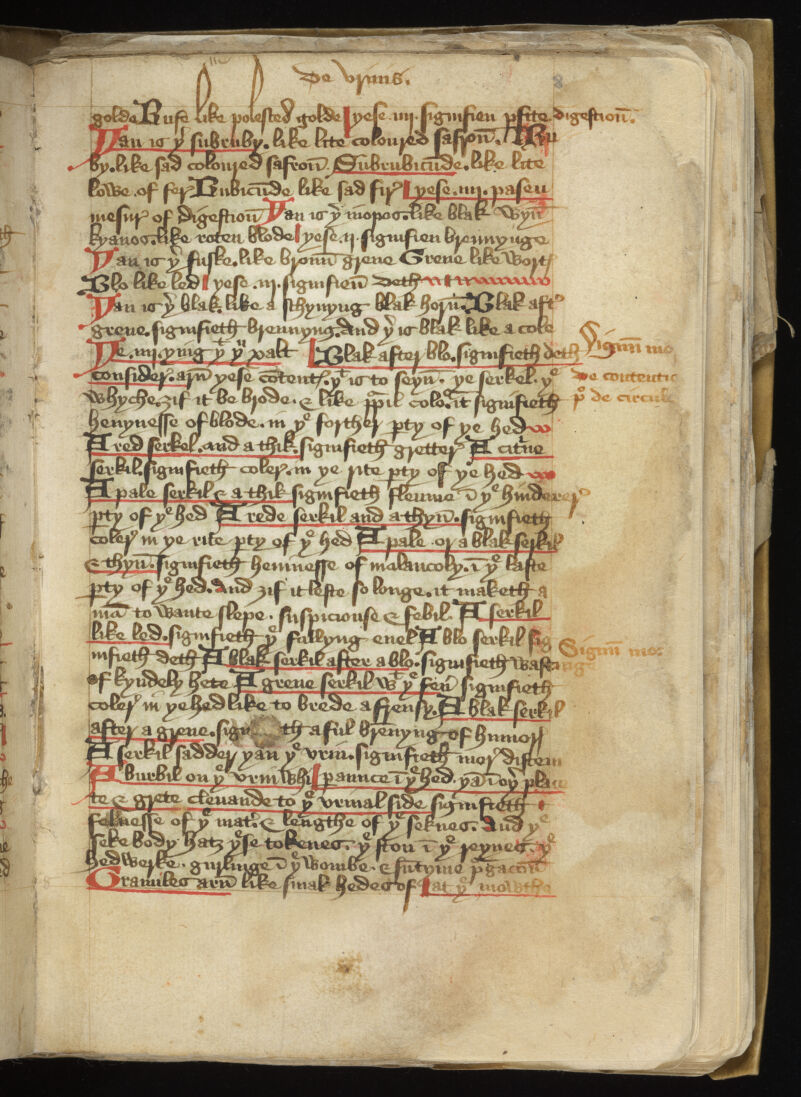 De vrinis. 8
golde Rufe like polested golde yese .iiij. signifien pfite digestioñ.
Yan is yͤ subruby. like lite coloured safroñ. Ru
by. like sad coloured safroñ Subrubicūde. like lite
lowe. of fer Rubicūde like sad fir yese .iiij. pasen
mesur of digestioñ Yan is yͤ inopos. like blak wyñ
kyanos. like roten blode yese .ij. signifien brennynge
Yan is yͤ fuske. like brouñ grene Grene like wort
Blo like led yese .iij. signifieñ deth
Yan is yͤ blak. like a schynyng blak horñ. Blak aftͬ
grene. signifieth brennyng. And yͤ is blak like a cole
Yͤ .iiij. yng yͭ yͧ xalt Blak after blo. signifieth deth
Signū mo
considerͬ. arñ yese cōtentͬ. yͭ is to seyñ. ye serkel. yͤ
De contentis
whyche. zif it be brode. & like ppil colo. it signifieth
p de circul
heuynesse of blode. in yͤ forther pty of ye hed
A red serkel. and a thik. signifieth gretterͬ A citne
serkil. signifieth colerͬ. in ye rite pty of ye hed
A pale serkil & a thik signifieth fleume ī yͤ hinderer
pty of yͤ hed A rede serkil and a thyñ. signifieth
colerͬ in ye rite pty of yͤ hed A pale. or a blak serkil
& thyñ. signifieth heuinesse of malancoly. ī yͤ lafte
pty of yͤ hed. And zif it leste so longe. it maketh a
mā to wante slepe. suspiciouse & febil. A serkil
like led. signifieth yͤ fallyng euel A blo serkil sig
Signū mo.
nifieth deth A blak serkil after a blo. signifieth wast
inge
of kyndely hete A grene serkil wͭ yͤ feuͬ signifieth
colerͬ in ye hed like to brede a frensy. A blak serkil
after a grene. sign th a ful brenyng of humorͬ
A serkil sadder yan yͤ vrin. signifieth morͬ distem
A burbil on yͤ vrin whi paunce ī yͤ hed. yā ī oyͬ place
te & grete cleuande to yͤ vrinal side signifieth
felnesse of yͤ matͬ. & lengthe of yͤ seknes. And yͤ
seke body hatz yͤse tokenes. yͤ ston ī yͤ reynes. yͤ
hedwerke. gurlinge ī yͤ wombe. & sūtyme pgacoñ
Grauiles arñ like smak hedes of at yͤ mowthe